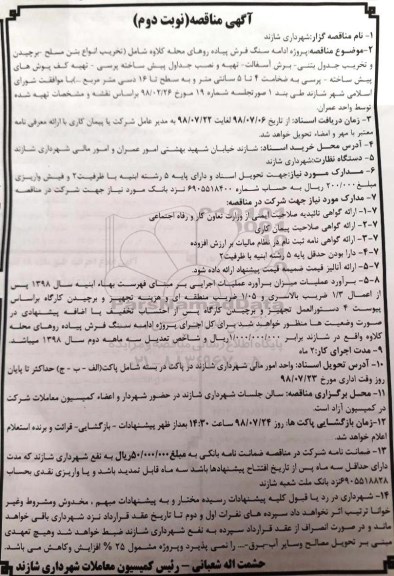 آگهی مناقصه(نوبت دوم)
۱- نام مناقصه گزار:شهرداری شازند
۲-موضوع مناقصه:پروژه ادامه سنگ فرش پیاده روهای محله کلاوه شامل (تخریب انواع بتن مسلح -برچیدن
و تخریب جدول بتنی- برش آسفالت- تهیه و نصب جداول پیش ساخته پرسی - تهیه کف پوش های
پیش ساخته - پرسی به ضخامت ۴ تا ۵ سانتی متر و به سطح تا ۱۶ دسی متر مربع ...)با موافقت شورای
اسلامی شهر شازند طی بند ۱ صورتجلسه شماره ۱۹ مورخ ۹۸/۰۲/۲۶ براساس نقشه و مشخصات تهیه شده
توسط واحد عمران.
۳- زمان دریافت اسناد: از تاریخ ۹۸/۰۷/۰۶ لغایت ۹۸/۰۷/۲۲ به مدیر عامل شرکت یا پیمان کاری با ارائه معرفی نامه
معتبر با مهر و امضاء تحویل خواهد شد.
۴- آدرس محل خرید اسناد: شازند خیابان شهید بهشتی امور عمران و امور مالی شهرداری شازند
۵- دستگاه نظارت:شهرداری شازند
۶- مدارک مورد نیاز:جهت تحویل اسناد و دارای پایه ۵ رشته ابنیه با ظرفیت۲ و فیش واریزی
مبلغ۲۰۰/۰۰۰ ریال به حساب شماره ۶۹۰۵۵۱۸۴۰۰ نزد بانک مورد نیاز جهت شرکت در مناقصه
۷- مدارک مورد نیاز جهت شرکت در مناقصه:
۷-۱- ارائه گواهی تائیدیه صلاحیت ایمنی از وزارت تعاون کار و رفاه اجتماعی
۷-۲- ارائه گواهی صلاحیت پیمان کاری
۷-۳- ارائه گواهی نامه ثبت نام در نظام مالیات بر ارزش افزوده
۷-۴- دارا بودن حداقل پایه ۵ رشته ابنیه با ظرفیت۲
۷-۵- ارائه آنالیز قیمت ضمیمه قیمت پیشنهاد ارائه داده شود.
۸-۵- برآورد عملیات میزان برآورد عملیات اجرایی بر مبنای فهرست بهاء ابنیه سال ۱۳۹۸ پس
از اعمال ۱/۳ ضریب بالاسری و ۱/۰۵ ضریب منطقه ای و هزینه تجهیز و برچیدن کارگاه براساس
پیوست ۴ دستورالعمل تجهیز و برچیدن کارگاه پس از احتساب تخفیف یا اضافه پیشنهادی در
صورت وضعیت ها منظور خواهد شد برای کل اجرای پروژه ادامه سنگ فرش پیاده روهای محله
کلاوه واقع در شازند برابر ۱/۰۰۰/۰۰۰/۰۰۰ریال و شاخص تعدیل سه ماهه دوم سال ۱۳۹۸ میباشد.
۹- مدت اجرای کار: ۲ ماه
۱۰- آدرس تحویل اسناد: واحد امور مالی شهرداری شازند در پاکت در بسته شامل پاکت(الف - ب - ج) حداکثر تا پایان
روز وقت اداری مورخ ۹۸/۰۷/۲۳
۱۱- محل برگزاری مناقصه: سالن جلسات شهرداری شازند در حضور شهردار و اعضاء کمیسیون معاملات شرکت
در کمیسیون آزاد است.
۱۲-زمان بازگشایی پاکت ها: روز ۹۸/۰۷/۲۴ ساعت ۱۴:۳۰ بعداز ظهر مهلت پیشنهادات - بازگشایی- قرائت و برنده استعلام
اعلام خواهد شد.
۱۳- ضمانت نامه شرکت در مناقصه ضمانت نامه بانکی به مبلغ۵۰/۰۰۰/۰۰۰ریال به نفع شهرداری شازند که مدت
دارای حداقل سه ماه پس از تاریخ افتتاح پیشنهادها باشد سه ماه قابل تمدید باشد و یا واریزی نقدی بحساب
۶۹۰۵۵۱۸۸۲۸نزد بانک ملت شعبه شازند
۱۴- شهرداری در رد یا قبول کلیه پیشنهادات رسیده مختار و به پیشنهادات مبهم ، مخدوش ومشروط وغیر
خوانا ترتیب اثر نخواهد داد سپرده های نفرات اول و دوم تا تاریخ عقد قرارداد نزد شهرداری باقی خواهد
ماند و در صورت انصراف از عقد قرارداد سپرده به نفع شهرداری شازند ضبط خواهد شد وهیچ تعهدی
مبنی بر تحویل مصالح وسایر آب-برق-... را نمی پذیرد وپروژه مشمول ۲۵ % افزایش وکاهش می باشد.
حشمت اله شعبانی - رئیس کمیسیون معاملات شهرداری شازند